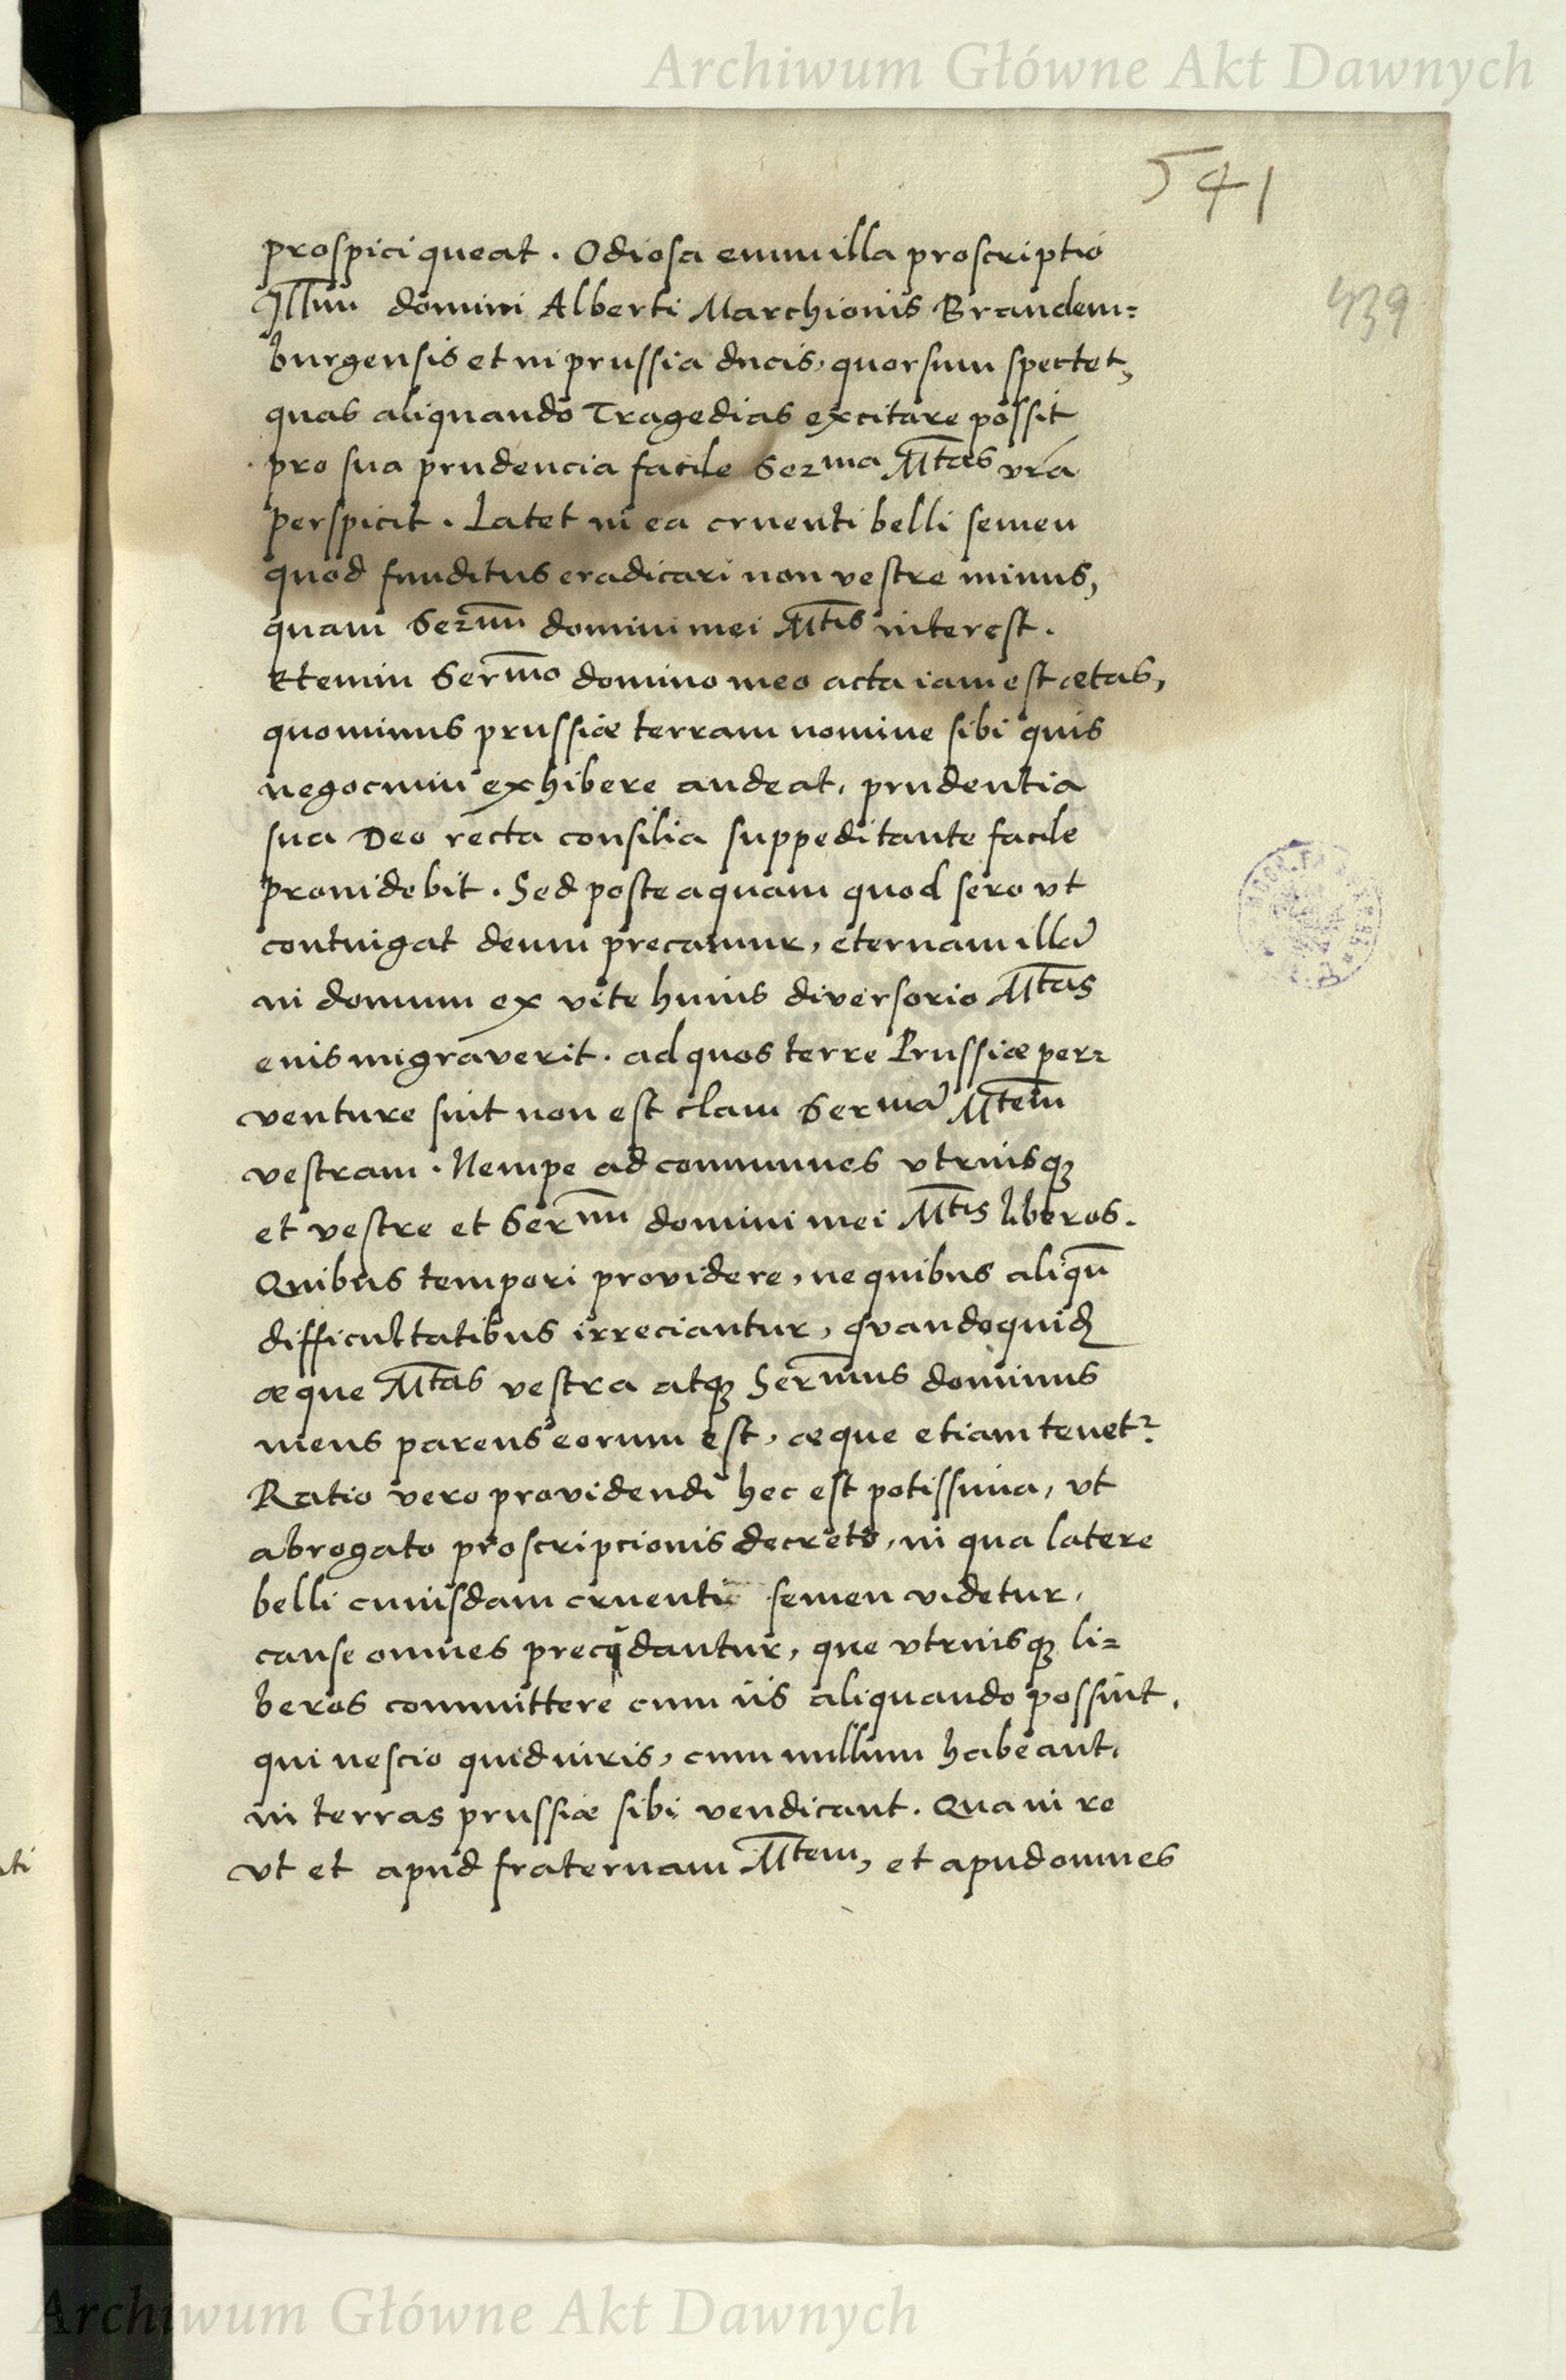 Archiwum Główne Akt Dawnych
541
439
prospici queat. Odiosa enim illa proscriptio
Illmi domini Alberti Marchionis Brandem=
burgensis et in prussia ducis, quorsum spectet,
quas aliquando Tragedias excitare possit
pro sua prudencia facile Serma Mtas vra
perspicit. Latet in ea cruenti belli semen
quod funditus eradicari non vestre minus,
quam Sermi domini mei Mtis interest.
Etenim Sermo domino meo acta iam est ætas,
quominus prussiæ terram nomine sibi quis
negocium exhibere audeat, prudentia
sua Deo recta consilia suppeditante facile
providebit. Sed posteaquam quod sero vt
contingat deum precamur, eternam illã
in domum ex vite huius diversorio Mtas
euis migraverit. ad quos terre Prussiæ per=
venture sint non est clam Sermã Mtem
vestram. Nempe ad communes vtriusqȝ
et vestre et Sermi domini mei Mtis liberos.
Quibus tempori providere, ne quibus aliqũ
difficultatibus irreciantur, quandoquid
æque Mtas vestra atqȝ Sermus dominus
meus parens eorum est, æque etiam tenetr.
Ratio vero providendi hec est potissima, vt
abrogato proscripcionis decreto, in qua latere
belli cuiusdam cruenti semen videtur,
cause omnes precidantur, que vtriusqȝ li=
beros committere cum iis aliquando possint,
qui nescio quid iuris, cum nullum habeant,
in terras prussiæ sibi vendicant. Qua in re
vt et apud fraternam Mtem, et apud omnes
Archiwum Główne Akt Dawnych